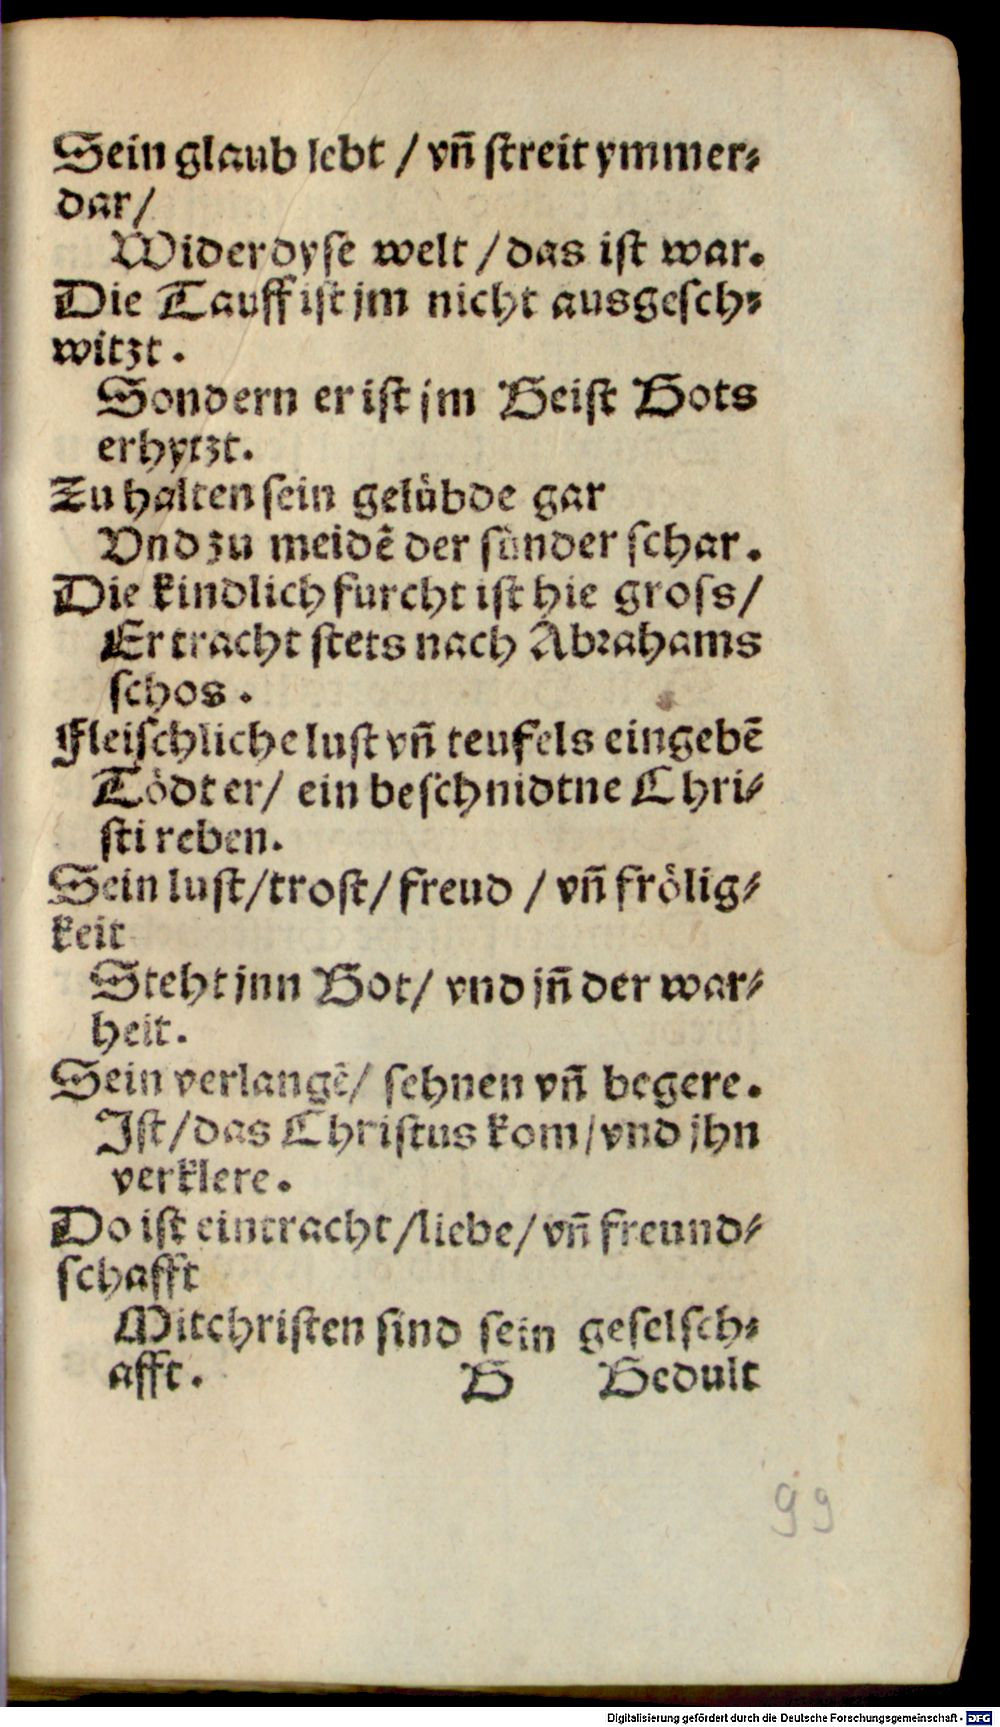 Sein glaub lebt / vñ streit ymmer⸗
dar /
Wider dyse welt / das ist war.
Die Tauff ist jm nicht ausgesch⸗
witzt.
Sondern er ist jm Geist Gots
erhytzt.
Zu halten sein gelübde gar
Vnd zu meidẽ der sünder schar.
Die kindlich furcht ist hie gross /
Er tracht stets nach Abrahams
schos.
Fleischliche lust vñ teufels eingebẽ
Tödt er / ein beschnidtne Chri⸗
sti reben.
Sein lust / trost / freud / vñ frölig⸗
keit
Steht jnn Got / vnd jñ der war⸗
heit.
Sein verlangẽ / sehnen vñ begere.
Ist / das Christus kom / vnd jhn
verklere.
Do ist eintracht / liebe / vñ freund⸗
schafft
Mitchristen sind sein geselsch⸗
afft. G Gedult
99
Digitalisierung gefördert durch die Deutsche Forschungsgemeinschaft - DFG